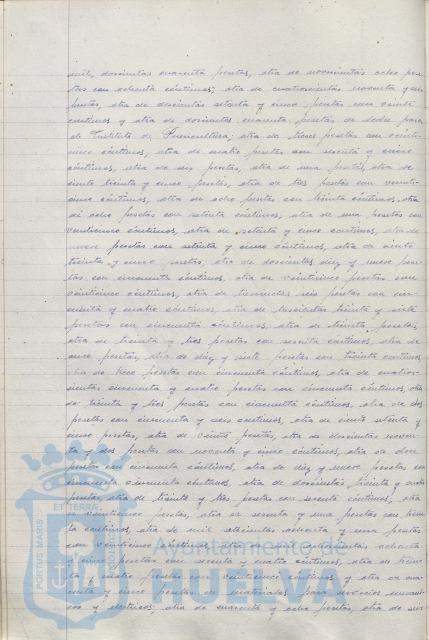 mil doscientas cuarenta pesetas, otra de novecientas ocho pese
tas con ochenta céntimos; otra de cuatrocientas noventa y un
pesetas, otra de doscientas setenta y cinco pesetas con veinte
céntimos y otra de doscientas cuarenta pesetas de
de Instituto de Puericultura; otra de trece pesetas con veinte
cinco céntimos, otra de cuatro pesetas con sesenta y cinco
céntimos, otra de seis pesetas, otra de una peseta, otra de
ciento treinta y cinco pesetas, otra de tres pesetas con veinti
cinco céntimos, otra de ocho pesetas con treinta céntimos, otra
de ocho pesetas con setenta céntimos, otra de una peseta con
veinticinco céntimos, otra de setenta y cinco céntimos, otra de
nueve pesetas con setenta y cinco céntimos, otra de ciento
treinta y cinco pesetas, otra de doscientas diez y nueve pese
tas con cincuenta céntimos, otra de veinticinco pesetas con
veinticinco céntimos, otra de seis pesetas con cin
cuenta y cuatro céntimos, otra de trescientas treinta y siete
pesetas con cincuenta céntimos, otra de treinta pesetas,
otra de treinta y tres pesetas con sesenta céntimos, otra de
once pesetas, otra de diez y siete pesetas con treinta céntimos
otra de trece pesetas con cincuenta céntimos, otra de cuatro
cientas cincuenta y cuatro pesetas con cincuenta céntimos, otra
de treinta y tres pesetas con cincuenta céntimos, otra de dos
pesetas con cincuenta y seis céntimos, otra de ciento setenta y
cinco pesetas, otra de veinte pesetas, otra de doscientas noven
ta y dos pesetas con noventa y cinco céntimos, otra de doce
pesetas con cincuenta céntimos, otra de diez y nueve pesetas con
cincuenta céntimos, otra de doscientas treinta y
pesetas, otra de treinta y tres pesetas con sesenta céntimos, otra
de veinticinco pesetas, otra de sesenta y una pesetas con trein
ta céntimos, otra de mil ochenta y una pesetas
con veinticinco céntimos ochenta
y cinco pesetas con sesenta y cuatro céntimos, otra de trein
ta y cuatro pesetas con veinticinco céntimos y otra de cua
renta y cinco pesetas de materiales para
y céntimos; otra de cuarenta y ocho pesetas, otra de
PORTUS MARIS
ET TERRAE
Ayuntamiento de
HUELVA